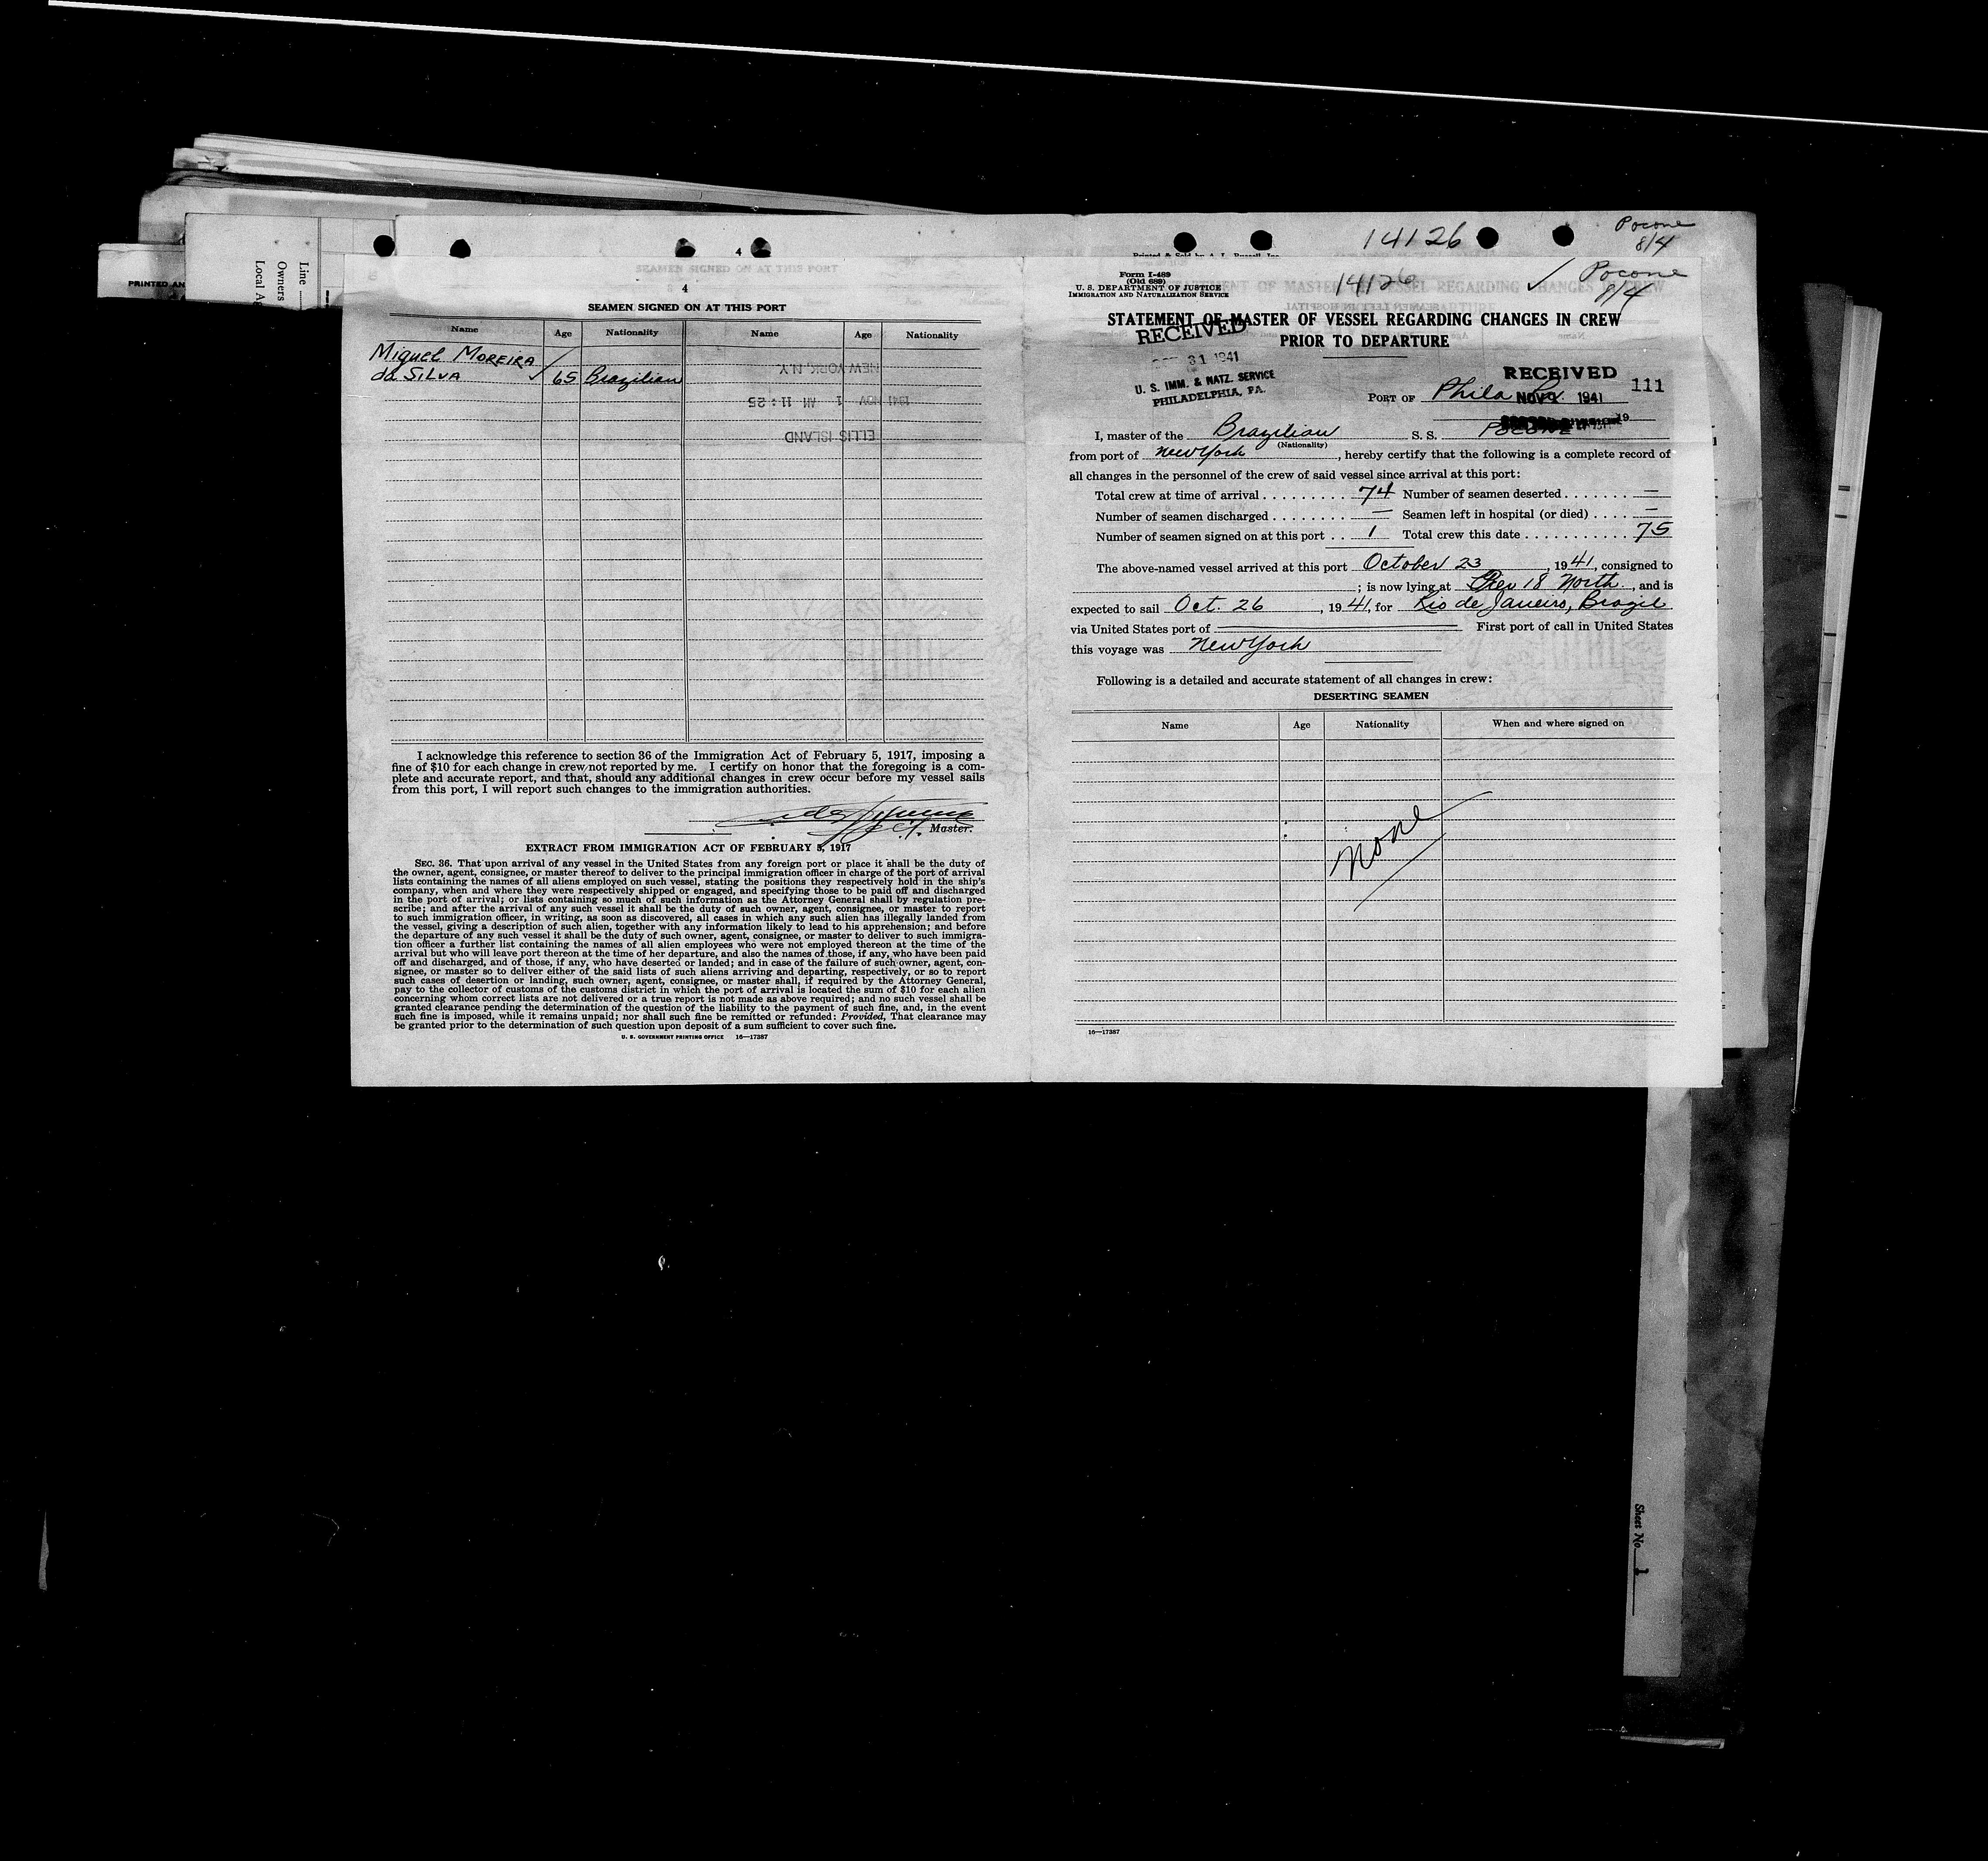 PRINTED AN
Line
Owners
Local Ag
4
SEAMEN SIGNED ON AT THIS PORT
4
SEAMEN SIGNED ON AT THIS PORT
Name Age Nationality Name Age Nationality
Miguel MOREIRA
da SILVA 65 Brazilian
NEW YORK, N.Y.
1941 NOV 1 AM 11:25
ELLIS ISLAND
I acknowledge this reference to section 36 of the Immigration Act of February 5, 1917, imposing a
fine of $10 for each change in crew not reported by me. I certify on honor that the foregoing is a com-
plete and accurate report, and that, should any additional changes in crew occur before my vessel sails
from this port, I will report such changes to the immigration authorities.
Master.
EXTRACT FROM IMMIGRATION ACT OF FEBRUARY 5, 1917
SEC. 36. That upon arrival of any vessel in the United States from any foreign port or place it shall be the duty of
the owner, agent, consignee, or master thereof to deliver to the principal immigration officer in charge of the port of arrival
lists containing the names of all aliens employed on such vessel, stating the positions they respectively hold in the ship's
company, when and where they were respectively shipped or engaged, and specifying those to be paid off and discharged
in the port of arrival; or lists containing so much of such information as the Attorney General shall by regulation pre-
scribe; and after the arrival of any such vessel it shall be the duty of such owner, agent, consignee, or master to report
to such immigration officer, in writing, as soon as discovered, all cases in which any such alien has illegally landed from
the vessel, giving a description of such alien, together with any information likely to lead to his apprehension; and before
the departure of any such vessel it shall be the duty of such owner, agent, consignee, or master to deliver to such immigra-
tion officer a further list containing the names of all alien employees who were not employed thereon at the time of the
arrival but who will leave port thereon at the time of her departure, and also the names of those, if any, who have been paid
off and discharged, and of those, if any, who have deserted or landed; and in case of the failure of such owner, agent, con-
signee, or master so to deliver either of the said lists of such aliens arriving and departing, respectively, or so to report
such cases of desertion or landing, such owner, agent, consignee, or master shall, if required by the Attorney General,
pay to the collector of customs of the customs district in which the port of arrival is located the sum of $10 for each alien
concerning whom correct lists are not delivered or a true report is not made as above required; and no such vessel shall be
granted clearance pending the determination of the question of the liability to the payment of such fine, and, in the event
such fine is imposed, while it remains unpaid; nor shall such fine be remitted or refunded: Provided, That clearance may
be granted prior to the determination of such question upon deposit of a sum sufficient to cover such fine.
U. S. GOVERNMENT PRINTING OFFICE 16—17387
14126
Pocone
8/4
Form I-489
(Old 689)
U. S. DEPARTMENT OF JUSTICE
IMMIGRATION AND NATURALIZATION SERVICE
14126
Pocone
8/4
STATEMENT OF MASTER OF VESSEL REGARDING CHANGES IN CREW
PRIOR TO DEPARTURE
RECEIVED
OCT 31 1941
U. S. IMM. & NATZ. SERVICE
PHILADELPHIA, PA.
RECEIVED 111
PORT OF Phila Pa.
NOV 1941
19
I, master of the Brazilian S. S. POCONE
(Nationality)
from port of New York, hereby certify that the following is a complete record of
all changes in the personnel of the crew of said vessel since arrival at this port:
Total crew at time of arrival 74 Number of seamen deserted —
Number of seamen discharged — Seamen left in hospital (or died) —
Number of seamen signed on at this port 1 Total crew this date 75
The above-named vessel arrived at this port October 23, 1941, consigned to
; is now lying at Pier 18 North, and is
expected to sail Oct. 26, 1941, for Rio de Janeiro, Brazil
via United States port of First port of call in United States
this voyage was New York
Following is a detailed and accurate statement of all changes in crew:
DESERTING SEAMEN
Name Age Nationality When and where signed on
None
16—17387
Sheet No. 1